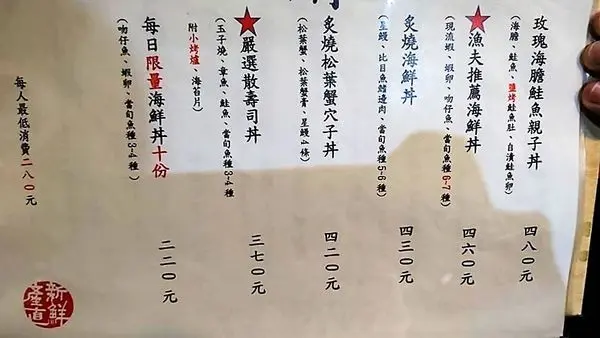 玫瑰海膽鮭魚親子丼 四八〇元
(海膽、鮭魚、鹽烤鮭魚肚、自漬鮭魚卵)
★漁夫推薦海鮮丼 四六〇元
(現流蝦、蝦卵、吻仔魚、當旬魚種6-7種)
炙燒海鮮丼 四三〇元
(星鰻、比目魚鰭邊肉、當旬魚種5-6種)
炙燒松葉蟹穴子丼 四二〇元
(松葉蟹、松葉蟹膏、星鰻4條)
★嚴選散壽司丼 三七〇元
(玉子燒、章魚、鮭魚、當旬魚種3-4種
附小烤爐、海苔片)
每日限量海鮮丼十份 二二〇元
(吻仔魚、蝦卵、當旬魚種3-4種)
每人最低消費二八〇元
新鮮
產直